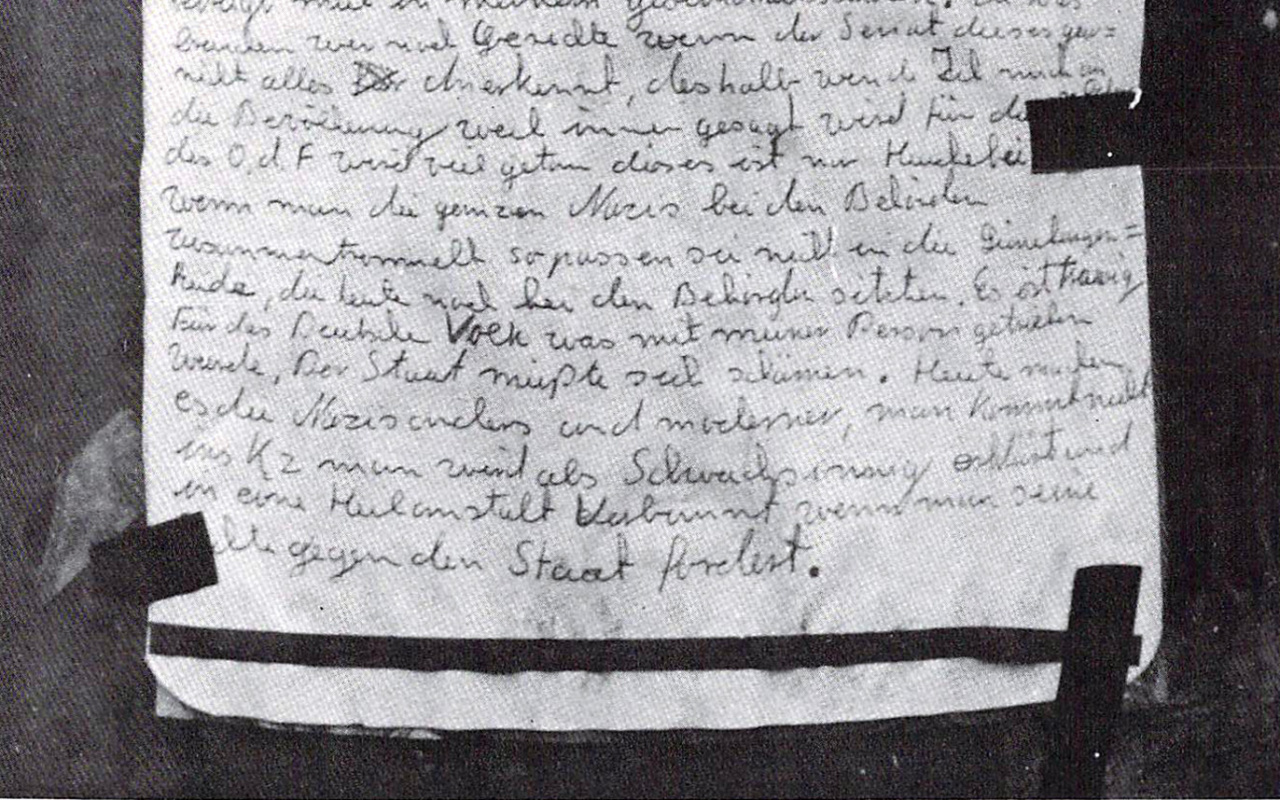 brauchen wir noch Gerichte wenn der Senat dieses gar=
nicht alles anerkennt, deshalb wende Ich mich an
die Bevölkerung weil immer gesagt wird für die
des O.d.F wird viel getan dieses ist nur
wenn man die ganzen Nazis bei den Behörden
zusammentrommelt so passen sie nicht in die
heide, die leute noch bei den Behörden sitzten. Es ist traurig
Für das Deutsche Volk was mit meiner Person getrieben
wurde, Der Staat müßte sich schämen. Heute machen
es die Nazis anders und moderner, man kommt nicht
ins Kz man wird als Schwachsinnig erklärt und
in eine Heilanstalt Verbannt wenn man seine
gegen den Staat fordert.